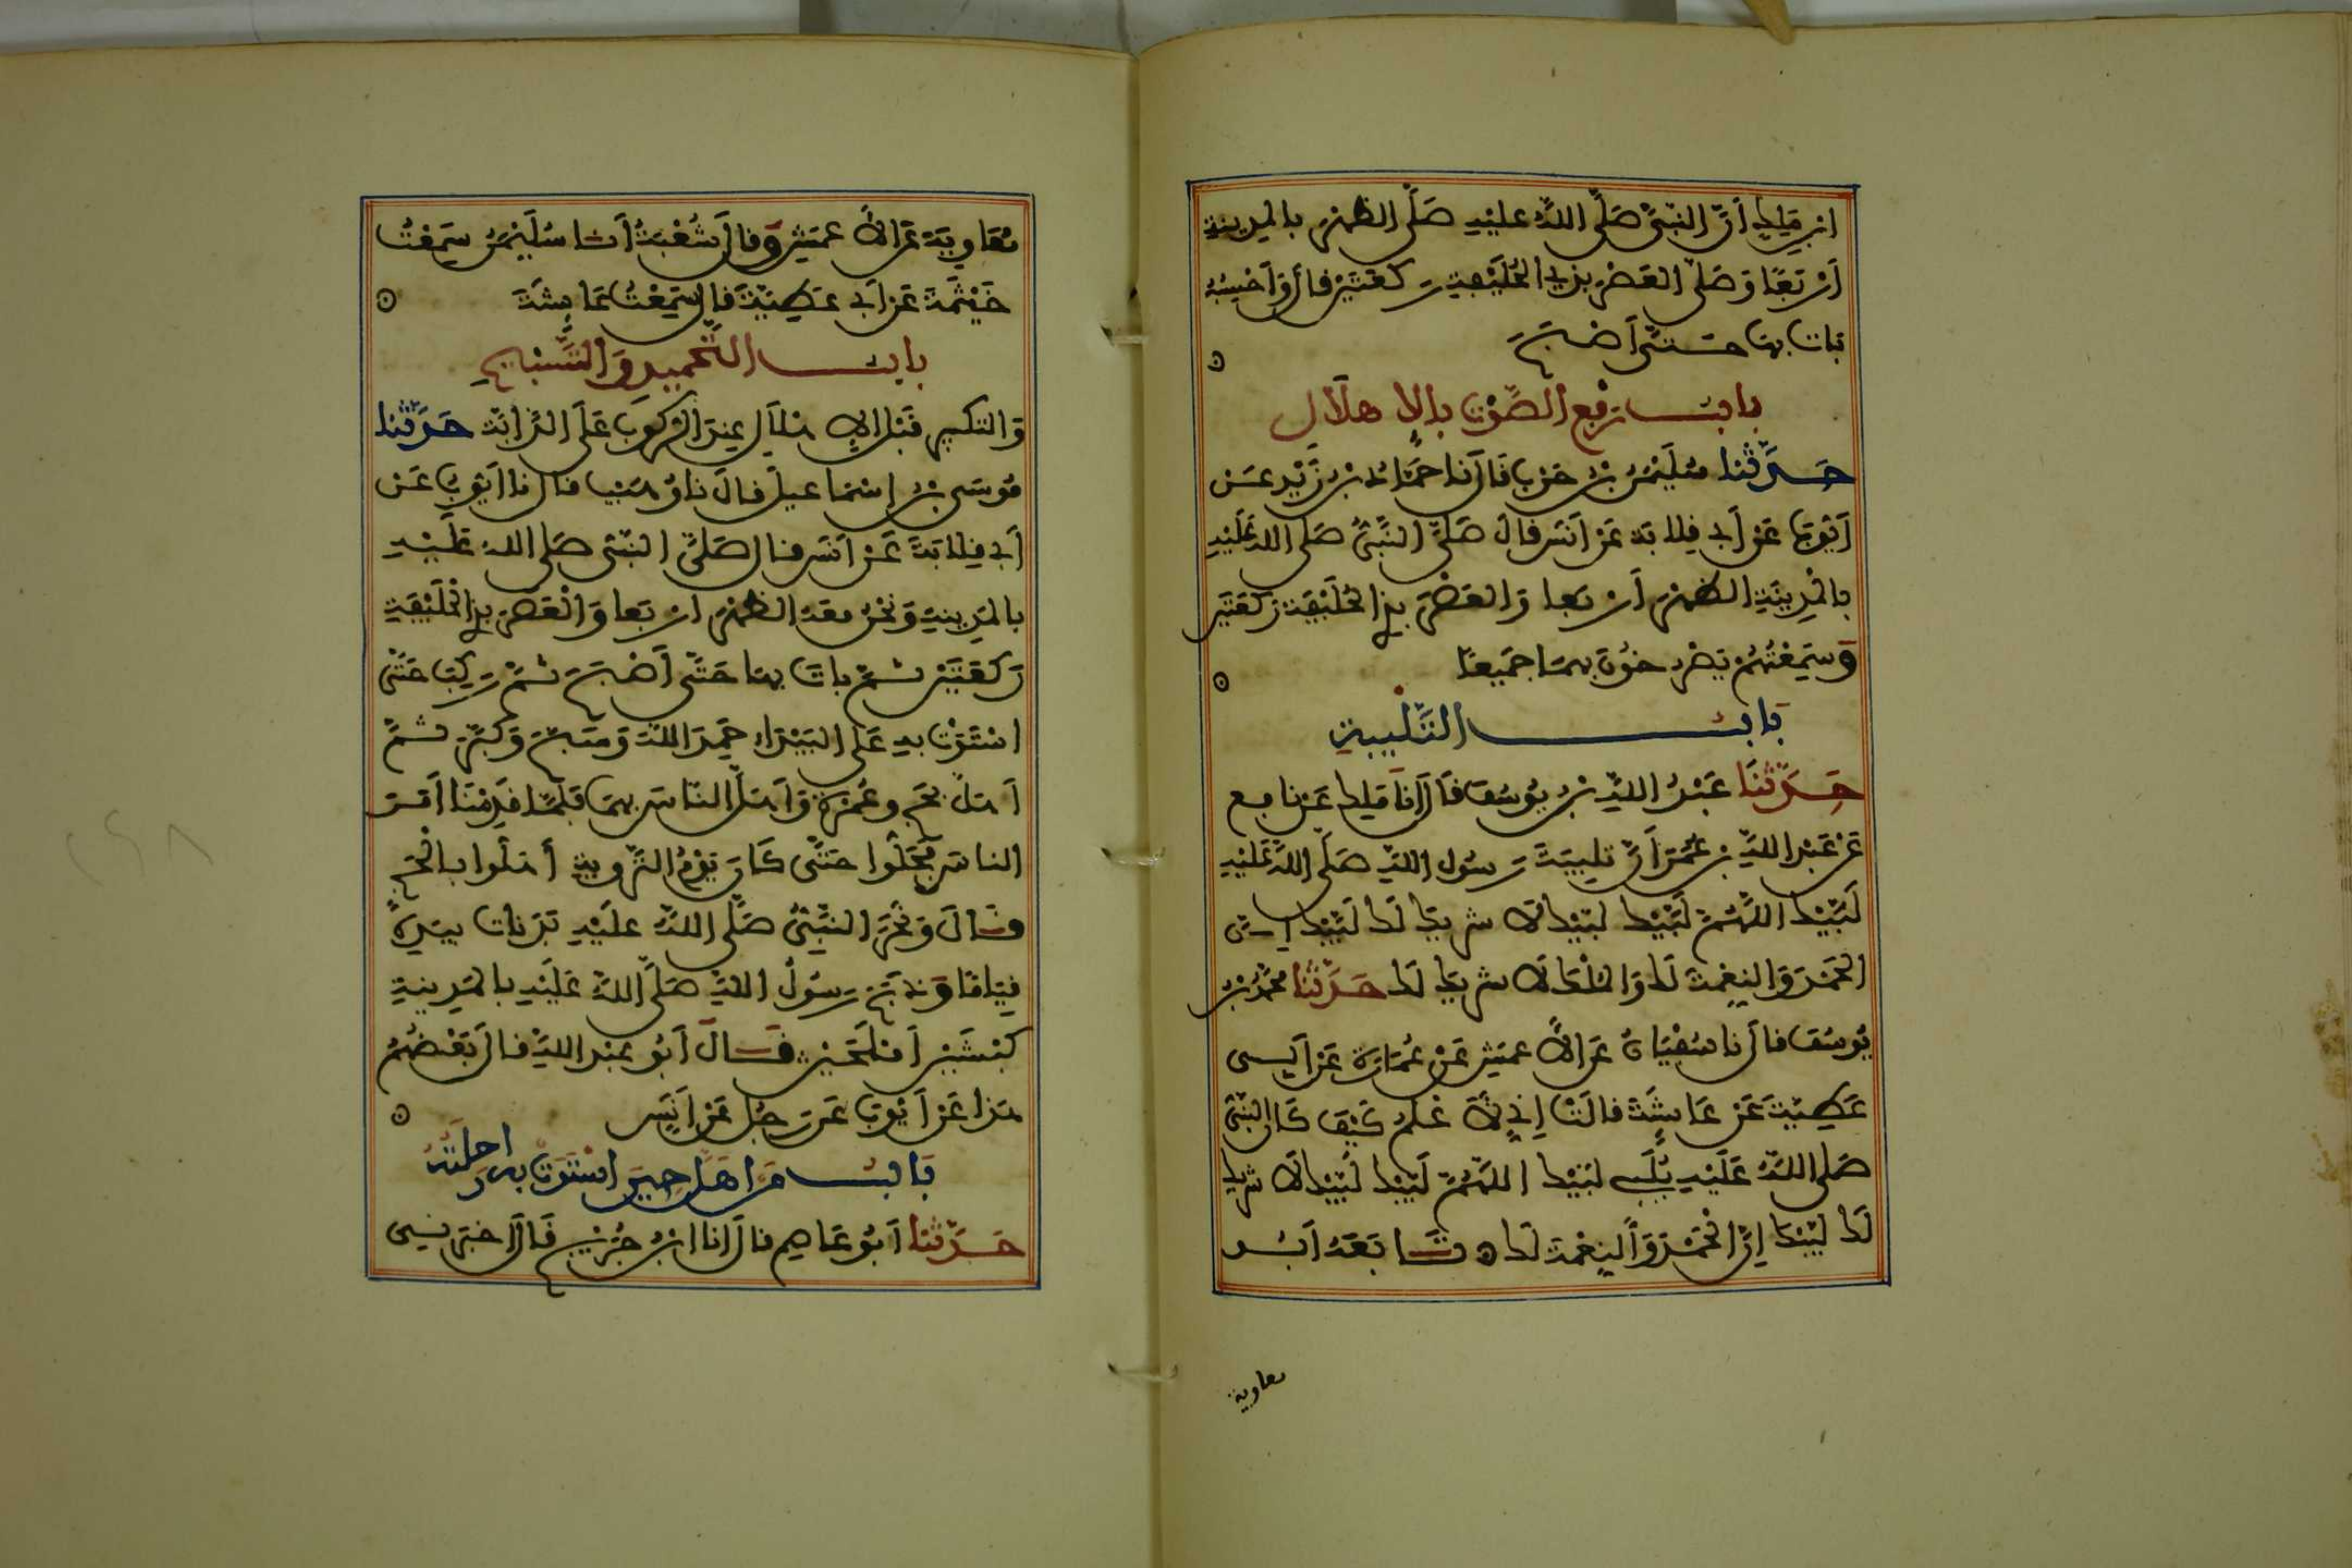 ابن ملك أن النبي صلى الله عليه صلى الظهر بالمدينة
أربعا وصلى العصر بذي الحليفة ركعتين قال وأحسبه
بات بها حتى أصبح
باب رفع الصوت بالإهلال
حدثنا سليمن بن حرب قال نا حماد بن زيد عن
أيوب عن أبي قلابة عن أنس قال صلى النبي صلى الله عليه
بالمدينة الظهر أربعا والعصر بذي الحليفة ركعتين
وسمعتهم يصرخون بهما جميعا
باب التلبية
حدثنا عبد الله بن يوسف قال أنا ملك عن نافع
عن عبد الله بن عمر أن تلبية رسول الله صلى الله عليه
لبيك اللهم لبيك لبيك لا شريك لك لبيك إن
الحمد والنعمة لك والملك لا شريك لك حدثنا محمد بن
يوسف قال نا سفيان عن الأعمش عن عمارة عن أبي
عطية عن عائشة قالت إني لأعلم كيف كان النبي
صلى الله عليه يلبي لبيك اللهم لبيك لبيك لا شريك
لك لبيك إن الحمد والنعمة لك تابعه أبو
معاوية
معاوية عن الأعمش وقال شعبة أنا سليمن سمعت
خيثمة عن أبي عطية قال سمعت عائشة
باب التحميد والتسبيح
والتكبير قبل الإهلال عند الركوب على الدابة حدثنا
موسى بن إسماعيل قال نا وهيب قال نا أيوب عن
أبي قلابة عن أنس قال صلى النبي صلى الله عليه
بالمدينة ونحن معه الظهر أربعا والعصر بذي الحليفة
ركعتين ثم بات بها حتى أصبح ثم ركب حتى
استوت به على البيداء حمد الله وسبح وكبر ثم
أهل بحج وعمرة وأهل الناس بهما فلما قدمنا أمر
الناس فحلوا حتى كان يوم التروية أهلوا بالحج
قال ونحر النبي صلى الله عليه بدنات بيده
قياما وذبح رسول الله صلى الله عليه بالمدينة
كبشين أملحين قال أبو عبد الله قال بعضهم
هذا عن أيوب عن رجل عن أنس
باب من أهل حين استوت به راحلته
حدثنا أبو عاصم قال أنا ابن جريج قال أخبرني